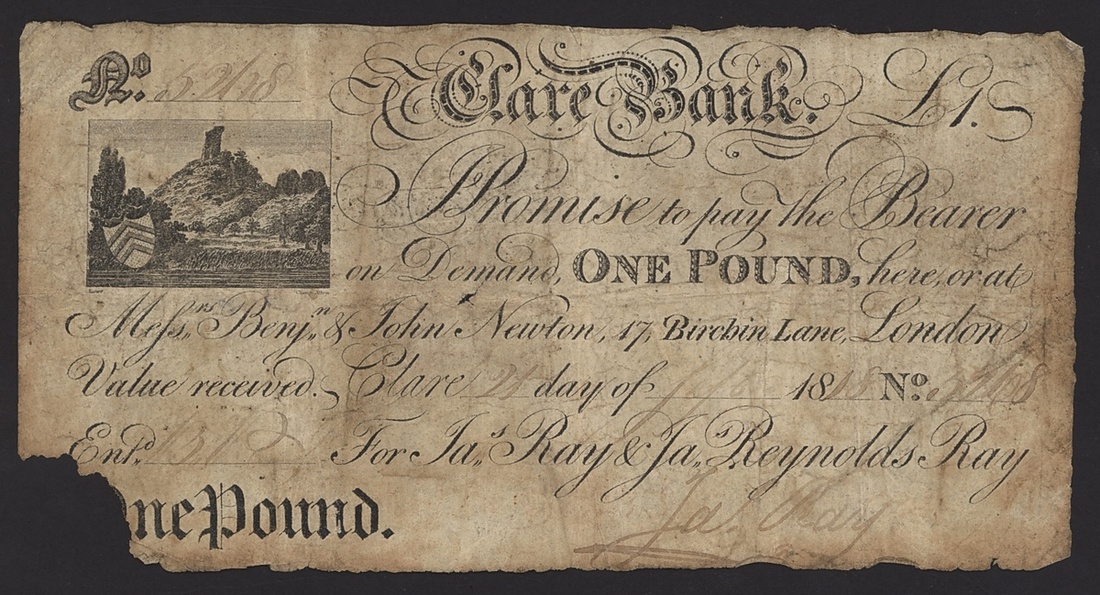 No. Clare Bank. £1.
I Promise to pay the Bearer
on Demand, ONE POUND, here, or at
Messrs. Benjn. & John Newton, 17, Birchin Lane, London
Value received. Clare 21 day of 1818 No.
Entd. For Jas. Ray & Jas. Reynolds Ray
ne Pound. Jas. Ray